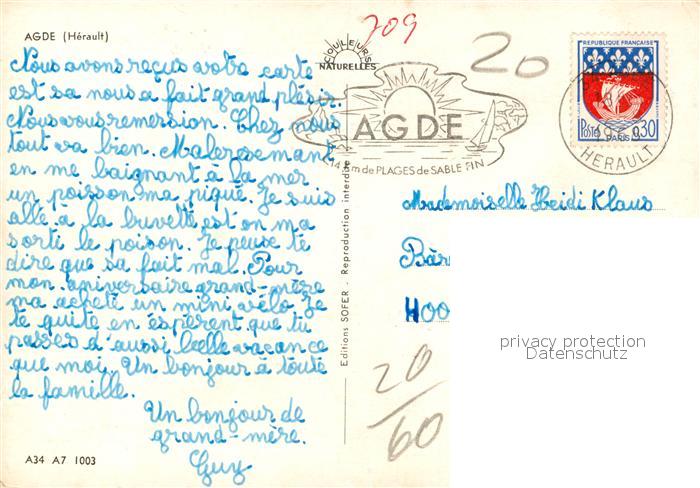 AGDE (Hérault)
Nous avons reçus votre carte
est sa nous a fait grand plésir.
Nous vous remersion. Chez nous
tout va bien. Malereusemant
en me baignant à la mer
un poisson ma piqué. Je suis
allé à la buvette est on ma
sorti le poison. Je peuse te
dire que sa fait mal. Pour
mon aniversaire grand-mère
ma acheté un mini vélo. Je
te quite en éspèrent que tu
passes d'aussi belle vacance
que moi. Un bonjour à toute
la famille.
Un bonjour de
grand-mère.
Guy
A34 A7 1003
COULEURS
NATURELLES
Editions SOFER - Reproduction interdite
709
20
AGDE
14 Km de PLAGES de SABLE FIN
REPUBLIQUE FRANÇAISE
POSTES 0,30
PARIS
HERAULT
Mademoiselle Heidi Klaus
Bär
400
20
60
privacy protection
Datenschutz